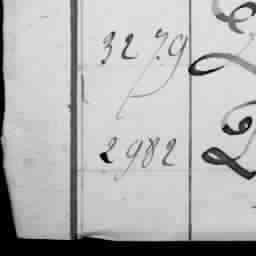 3279
2982